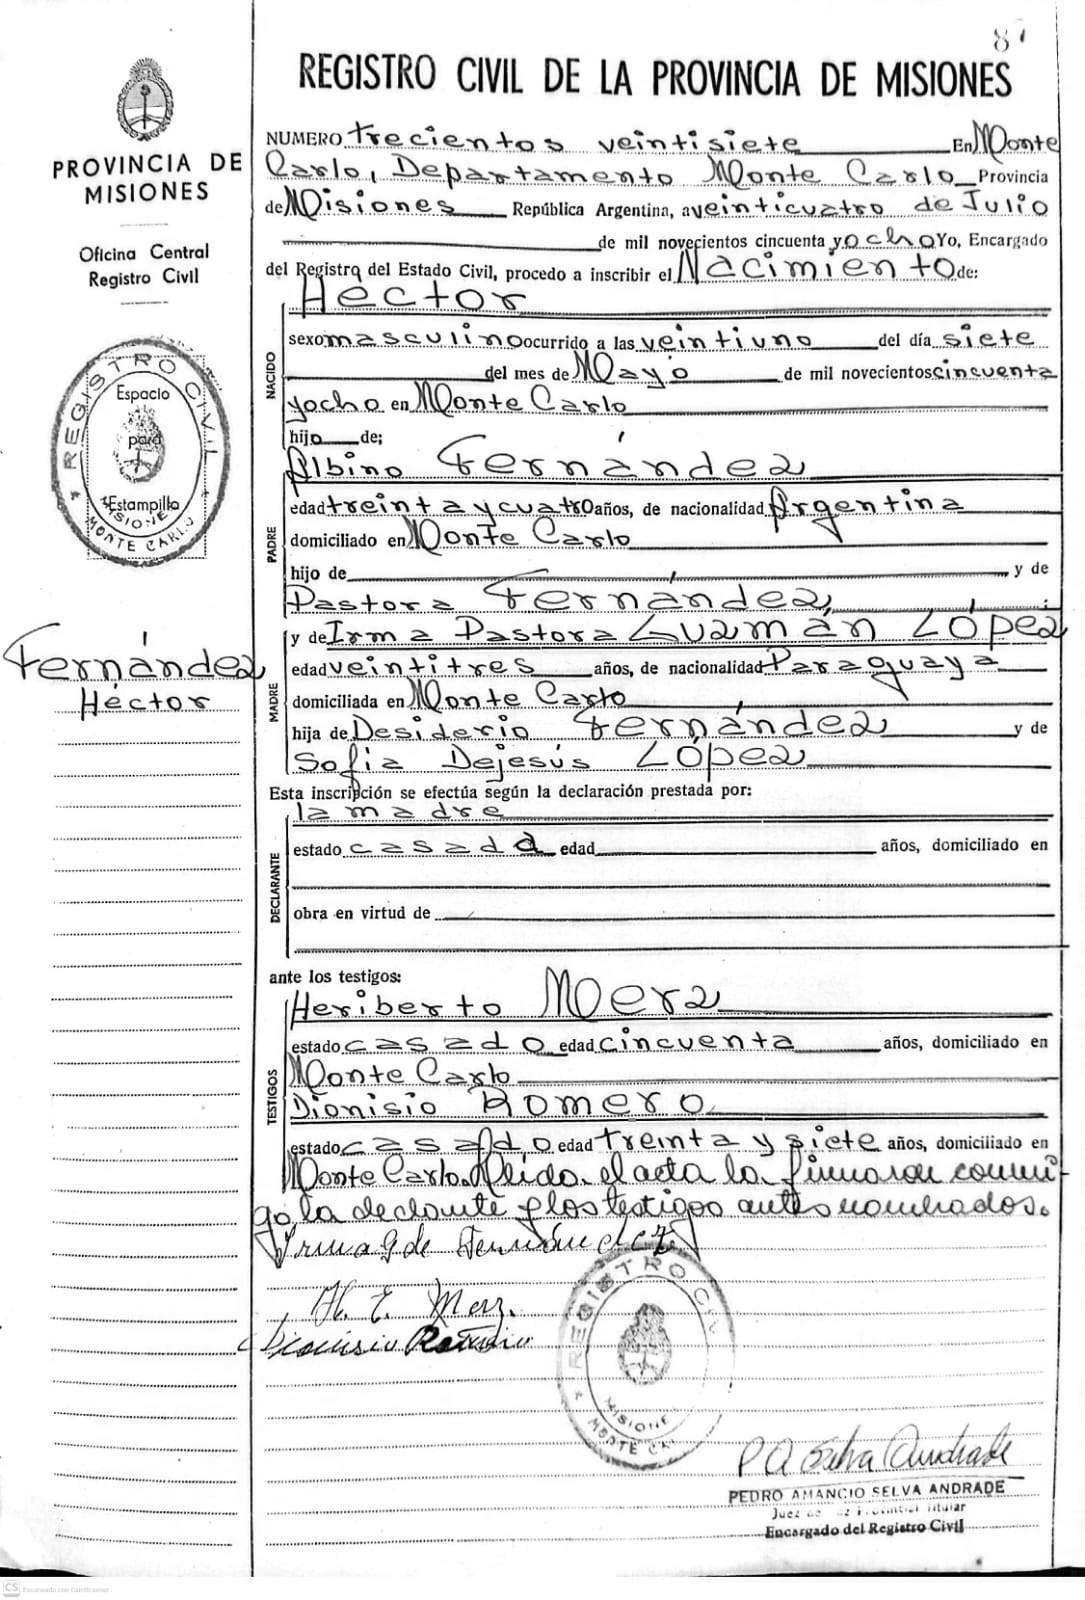 87
REGISTRO CIVIL DE LA PROVINCIA DE MISIONES
PROVINCIA DE
MISIONES
Oficina Central
Registro Civil
REGISTRO CIVIL
Espacio
para
Estampilla
MISIONES
MONTE CARLO
Fernández
Héctor
NUMERO trecientos veintisiete En Monte
Carlo, Departamento Monte Carlo Provincia
de Misiones República Argentina, a veinticuatro de Julio
de mil novecientos cincuenta y ocho Yo, Encargado
del Registro del Estado Civil, procedo a inscribir el Nacimiento de:
Héctor
NACIDO
sexo masculino ocurrido a las veintiuno del día siete
del mes de Mayo de mil novecientos cincuenta
yocho en Monte Carlo
hijo de;
Albino Fernández
PADRE
edad treinta y cuatro años, de nacionalidad Argentina
domiciliado en Monte Carlo
hijo de y de
Pastora Fernández
MADRE
y de Irma Pastora Guzmán López
edad veintitres años, de nacionalidad Paraguaya
domiciliada en Monte Carlo
hija de Desiderio Fernández y de
Sofia Dejesús López
Esta inscripción se efectúa según la declaración prestada por:
la madre
DECLARANTE
estado casada edad años, domiciliado en
obra en virtud de
ante los testigos:
Heriberto Merz
TESTIGOS
estado casado edad cincuenta años, domiciliado en
Monte Carlo
Dionisio Romero
estado casado edad treinta y siete años, domiciliado en
Monte Carlo. Leida el acta la firmaron conmi
go la declarante y los testigos antes nombrados.
Irma G de Fernández
H. E. Merz.
Dionisio Romero
REGISTRO CIVIL
MISIONES
MONTE CARLO
P A Selva Andrade
PEDRO AMANCIO SELVA ANDRADE
Juez de Paz Provincial Titular
Encargado del Registro Civil
CS Escaneado con CamScanner